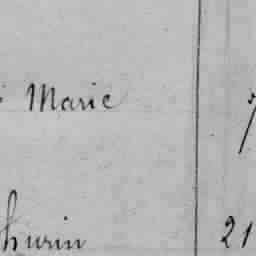 Marie
hurin 21